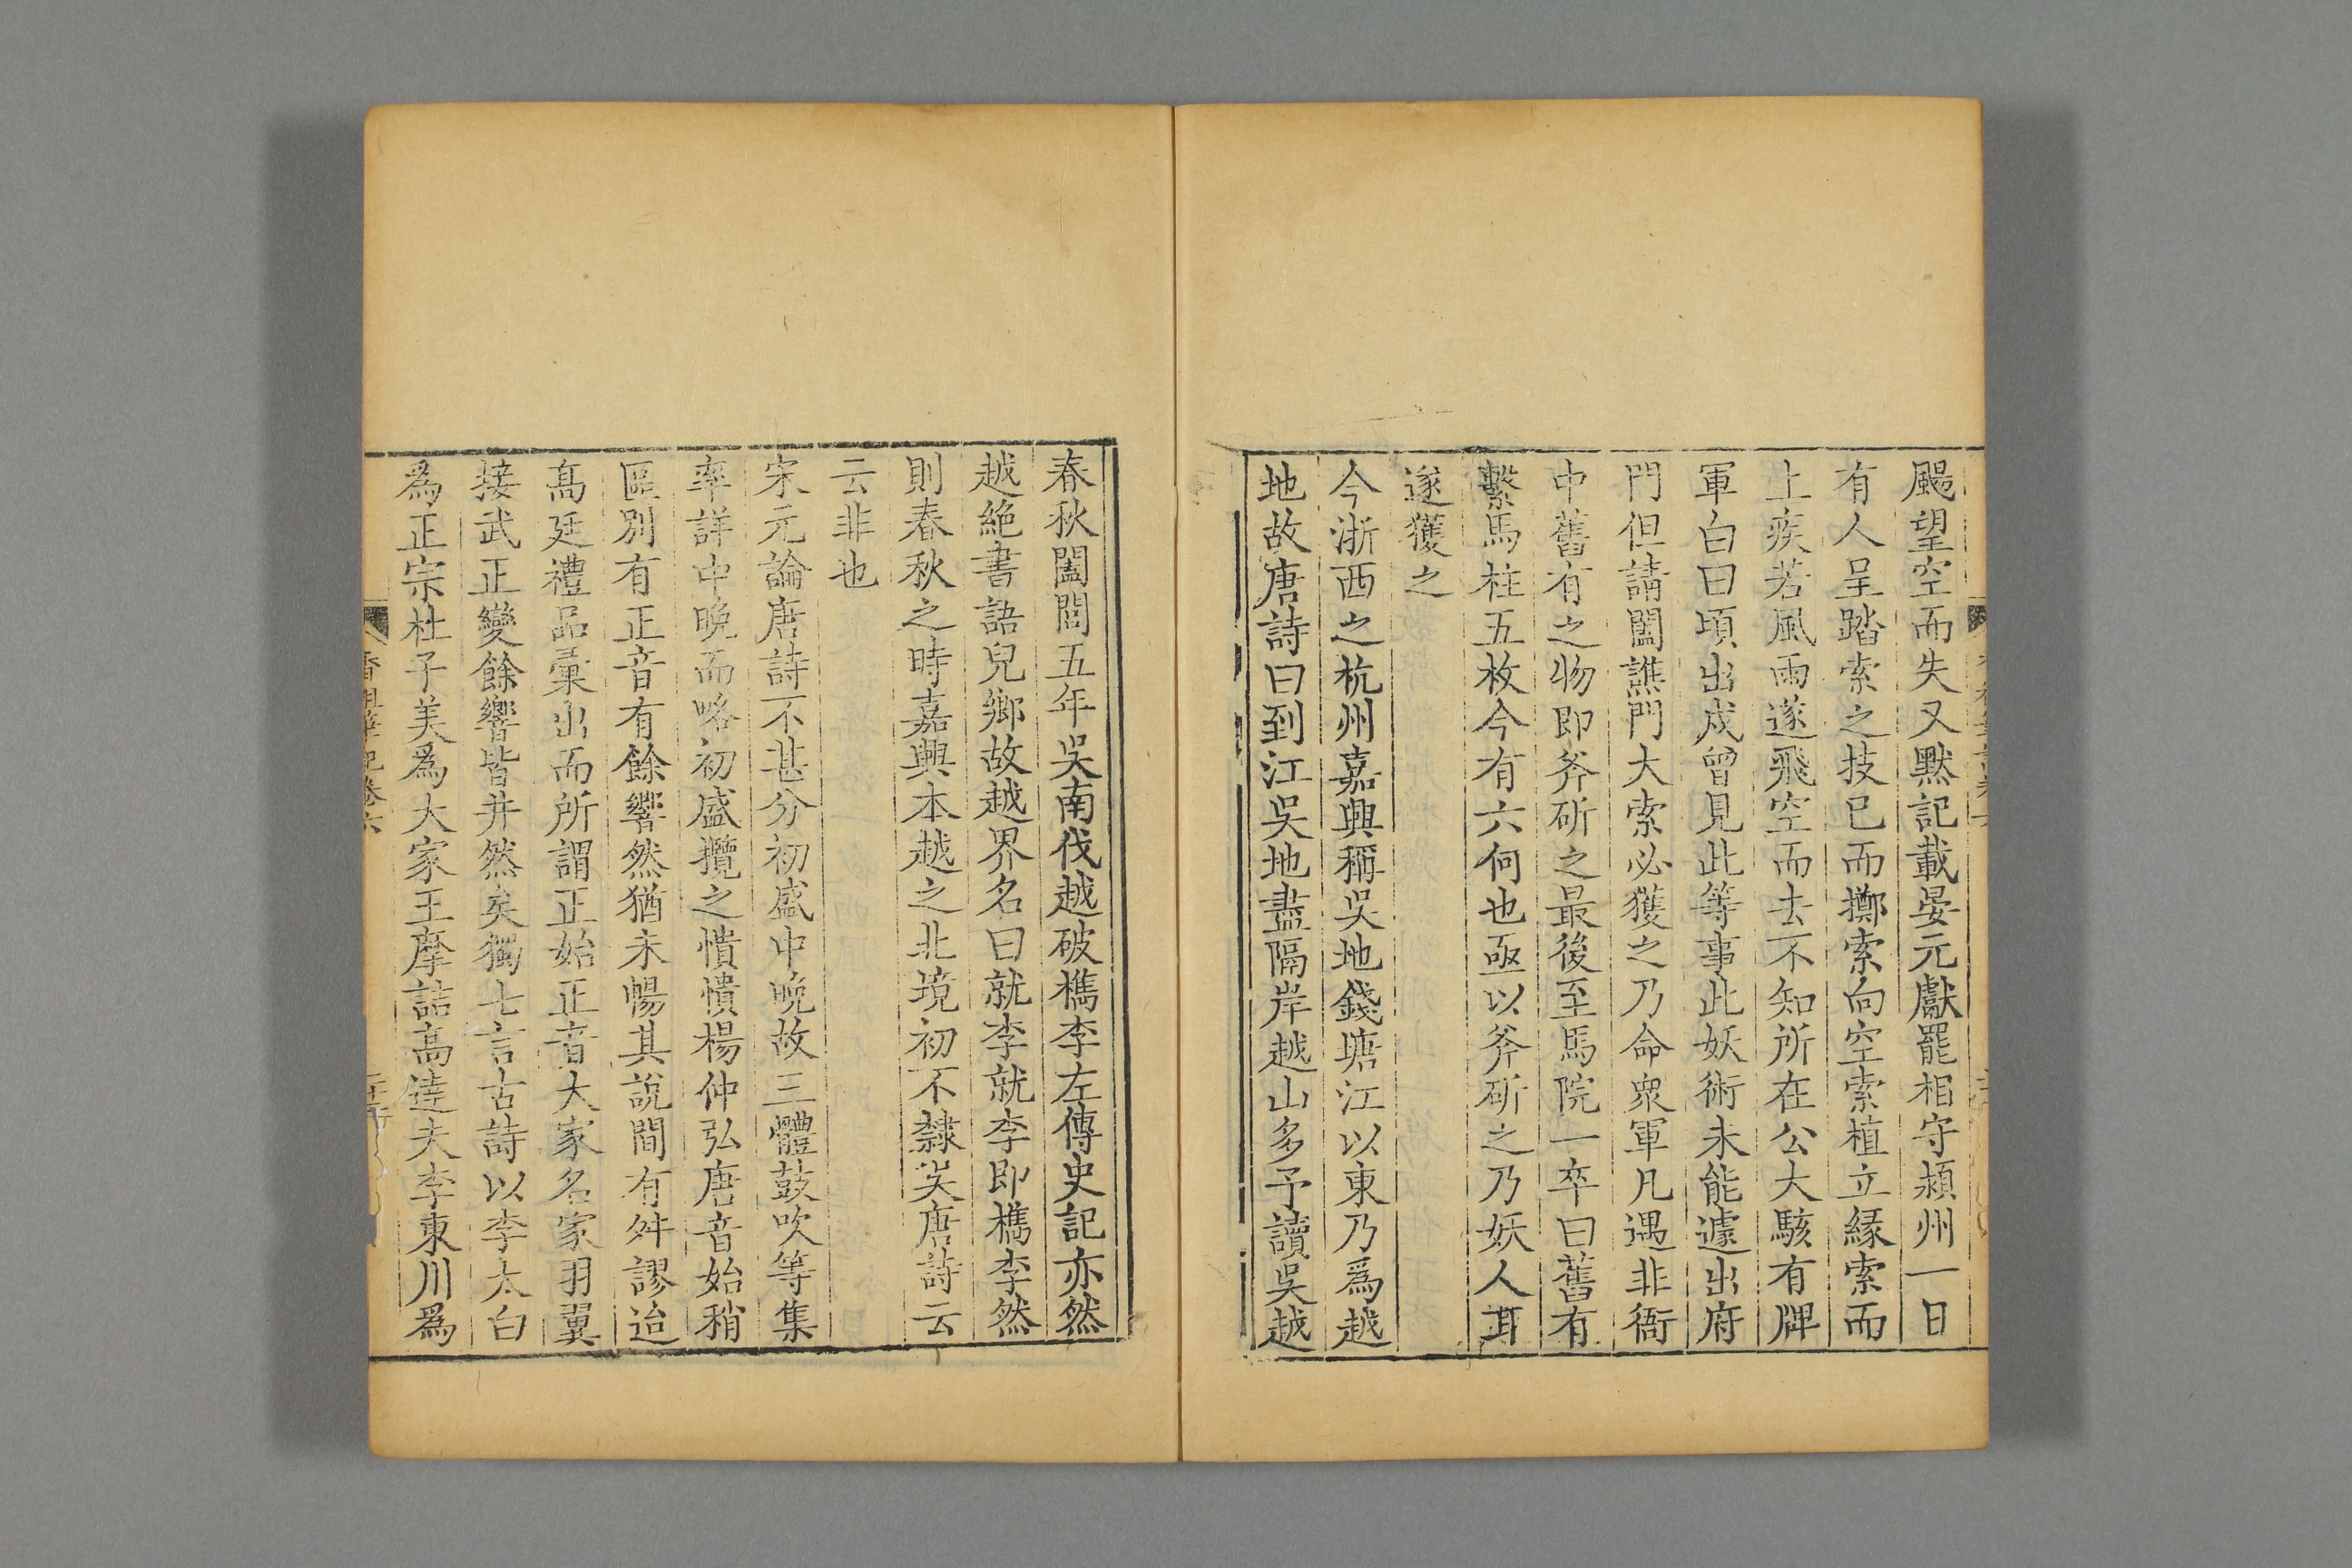 颺望空而失又默記載晏元獻罷相守潁州一日
有人呈踏索之技已而擲索向空索植立緣索而
上疾若風雨遂飛空而去不知所在公大駭有牌
軍白曰頃出戍曾見此等事此妖術未能遽出府
門但請闔譙門大索必獲之乃命衆軍凡遇非衙
中舊有之物即斧斫之最後至馬院一卒曰舊有
繫馬柱五枚今有六何也亟以斧斫之乃妖人耳
遂獲之
今浙西之杭州嘉興稱吳地錢塘江以東乃爲越
地故唐詩曰到江吳地盡隔岸越山多予讀吳越
春秋闔閭五年吳南伐越破檇李左傳史記亦然
越絶書語兒鄉故越界名曰就李就李即檇李然
則春秋之時嘉興本越之北境初不隸吳唐詩云
云非也
宋元論唐詩不甚分初盛中晚故三體鼓吹等集
率詳中晚而略初盛攬之憒憒楊仲弘唐音始稍
區別有正音有餘響然猶未暢其說間有舛謬迨
髙廷禮品彙出而所謂正始正音大家名家羽翼
接武正變餘響皆井然矣獨七言古詩以李太白
爲正宗杜子美爲大家王摩詰髙達夫李東川爲
香祖筆記卷六